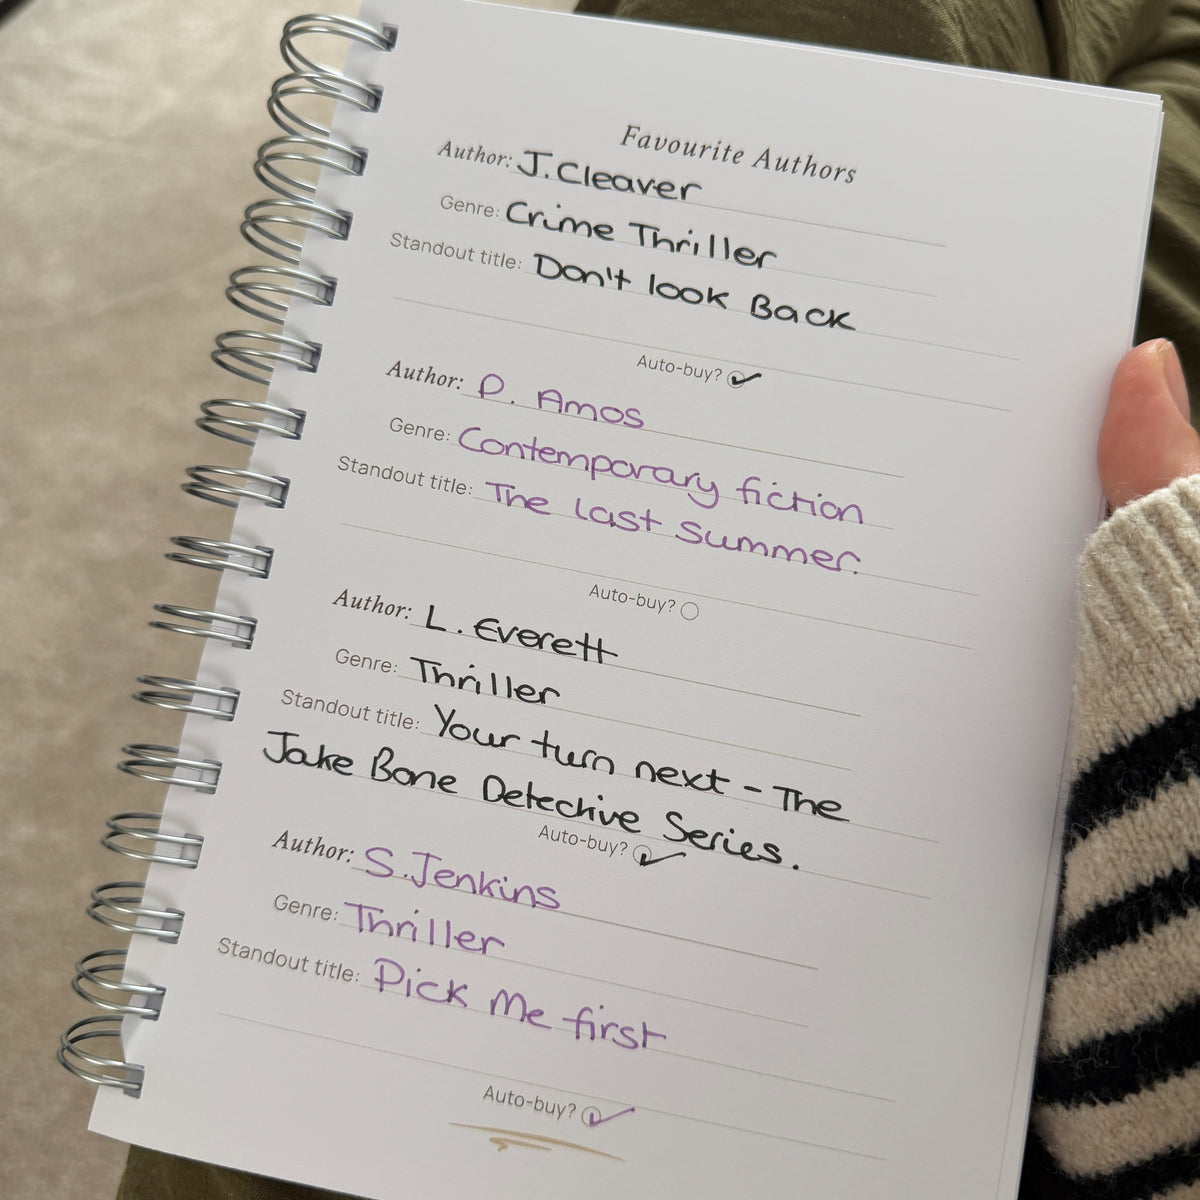 Favourite Authors
Author: J. Cleaver
Genre: Crime Thriller
Standout title: Don't look Back
Auto-buy?
Author: P. Amos
Genre: Contemporary fiction
Standout title: The last summer.
Auto-buy?
Author: L. Everett
Genre: Thriller
Standout title: Your turn next - The
Jake Bone Detective Series.
Auto-buy?
Author: S. Jenkins
Genre: Thriller
Standout title: Pick Me first
Auto-buy?